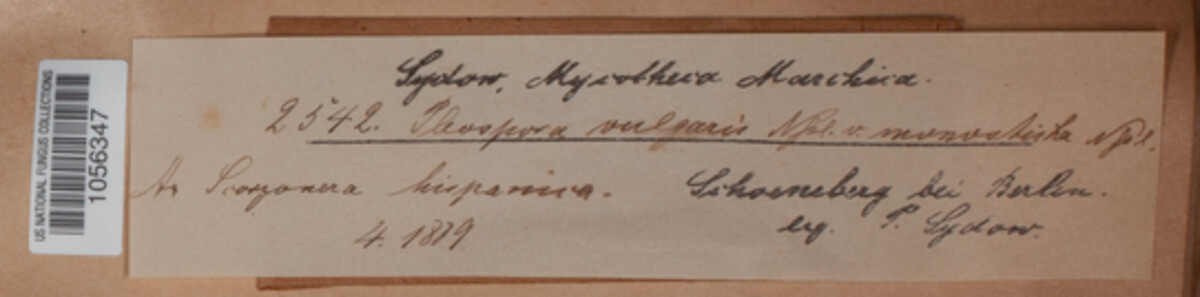 US NATIONAL FUNGUS COLLECTIONS
1056347
Sydow, Mycotheca Marchica.
2542. Pleospora vulgaris Npl. v. monosticha Npl.
An Scorzonera hispanica. Schoeneberg bei Berlin.
4. 1889 leg. P. Sydow.